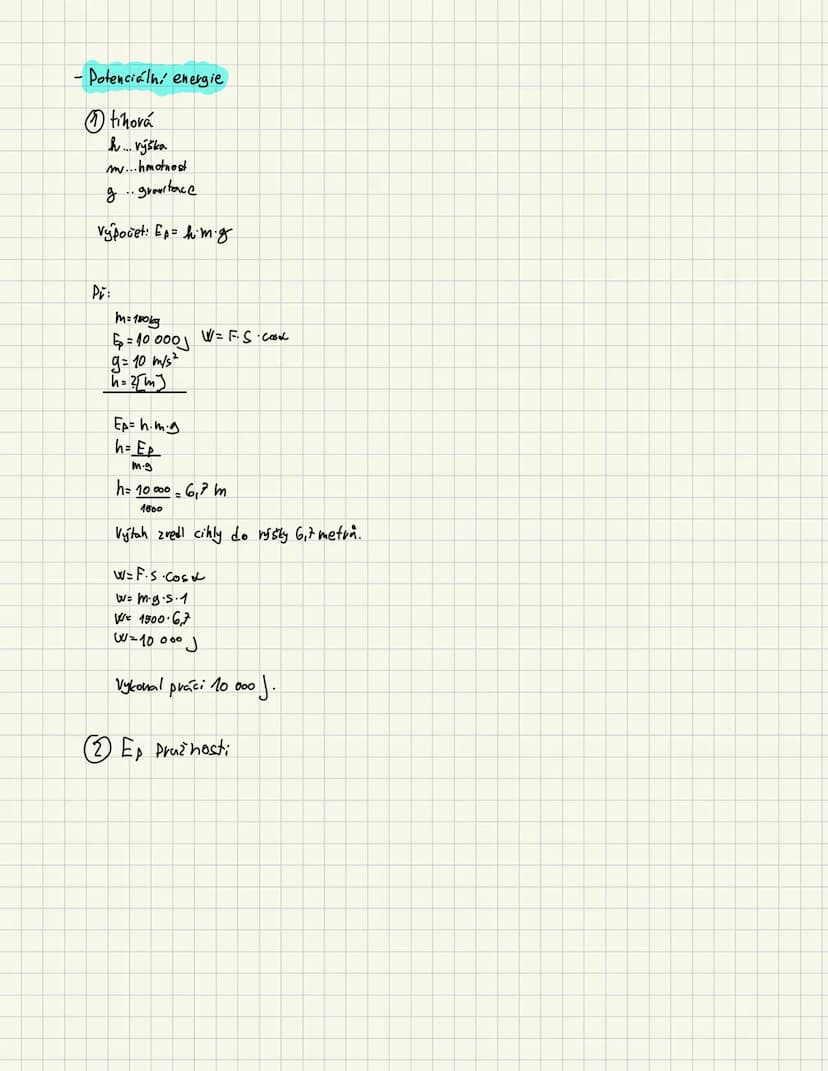 - Potenciální energie
① tíhová
h... výška
m...hmotnost
g .. gravitace
Výpočet: Ep= h·m·g
Př:
m=150kg
Ep=10 000J W= F·S·cosα
g= 10 m/s²
h= ?[m]
Ep= h·m·g
h= Ep
m·g
h= 10 000 = 6,7 m
1500
Výtah zvedl cihly do výšky 6,7 metrů.
W=F·s·cosα
W= m·g·s·1
W= 1500·6,7
W=10 000 J
Vykonal práci 10 000 J.
② Ep pružnosti